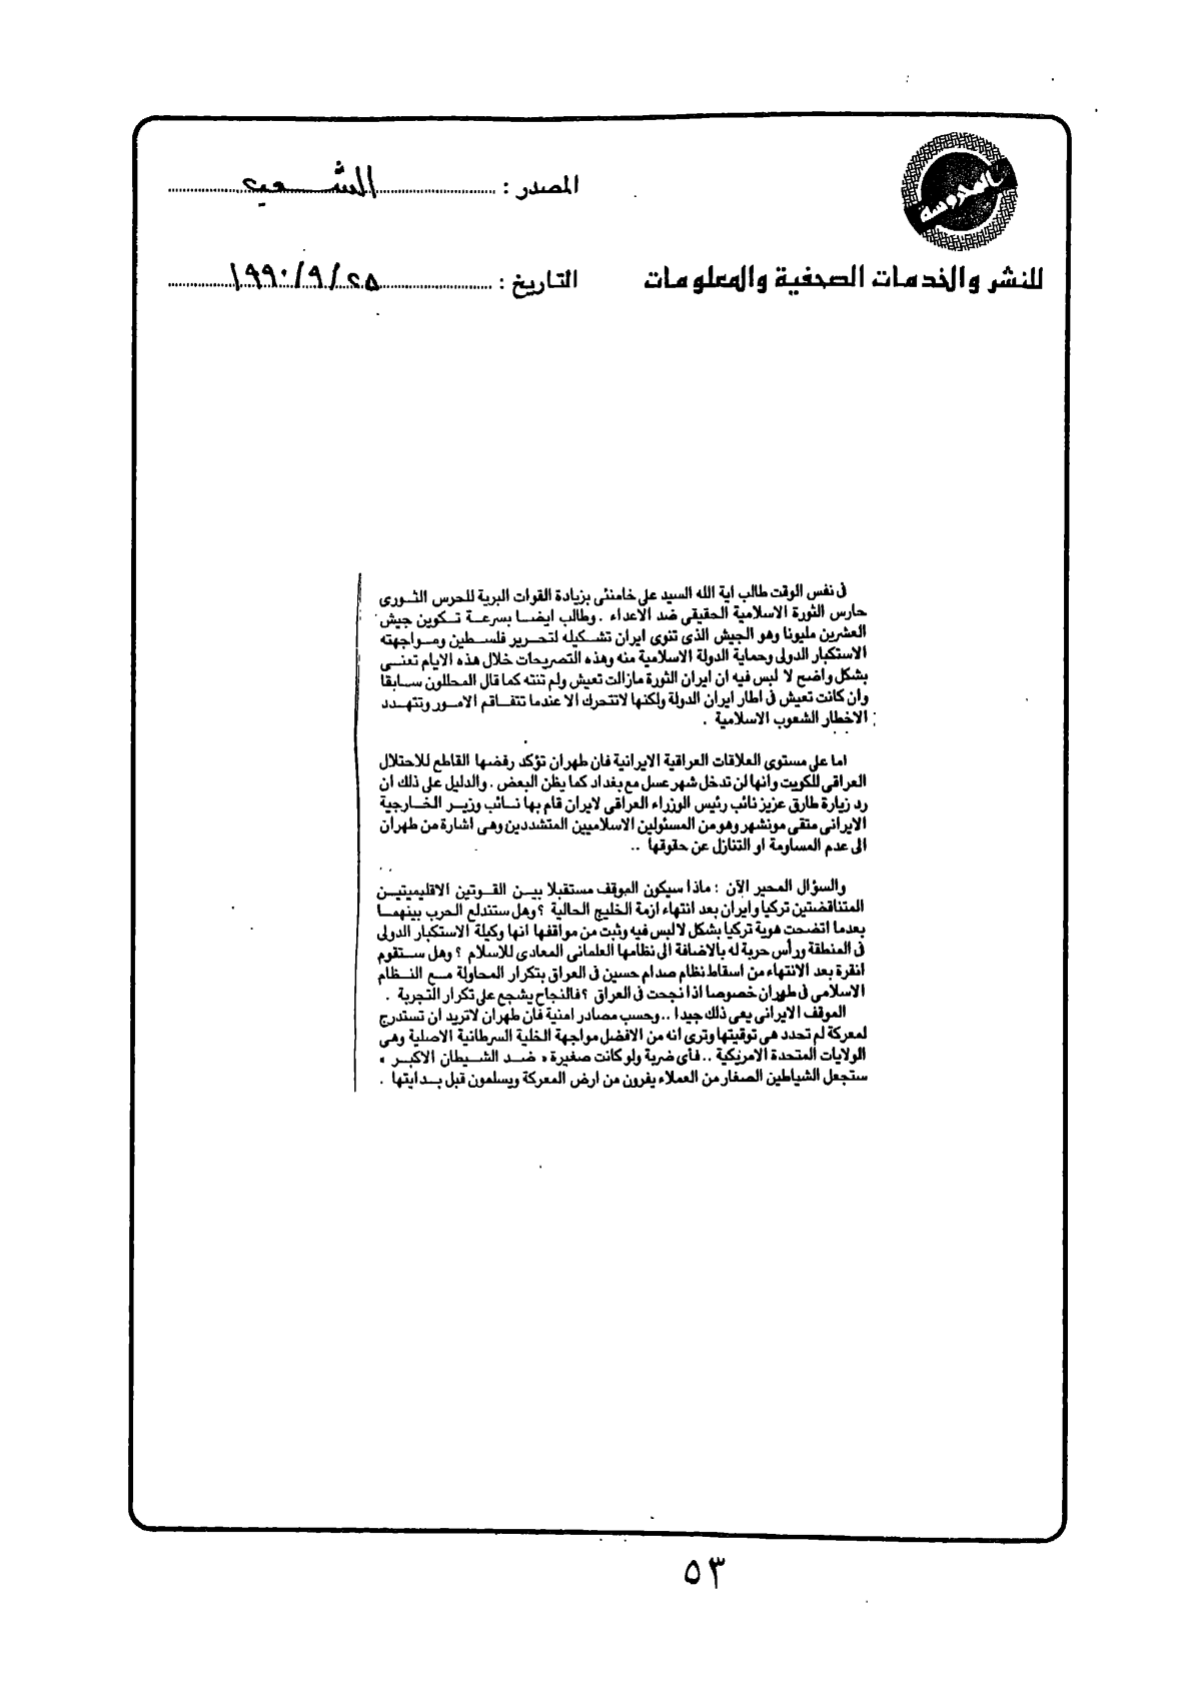 المحروسة
المصدر : الشعب
للنشر والخدمات الصحفية والمعلومات
التاريخ : ٢٥/٩/١٩٩٠
فى نفس الوقت طالب اية الله السيد على خامنئى بزيادة القوات البرية للحرس الثورى
حارس الثورة الاسلامية الحقيقى ضد الاعداء . وطالب ايضا بسرعة تكوين جيش
العشرين مليونا وهو الجيش الذى تنوى ايران تشكيله لتحرير فلسطين ومواجهته
الاستكبار الدولى وحماية الدولة الاسلامية منه وهذه التصريحات خلال هذه الايام تعنى
بشكل واضح لا لبس فيه ان ايران الثورة مازالت تعيش ولم تنته كما قال المحللون سابقا
وان كانت تعيش فى اطار ايران الدولة ولكنها لاتتحرك الا عندما تتفاقم الامور وتتهدد
الاخطار الشعوب الاسلامية .
اما على مستوى العلاقات العراقية الايرانية فان طهران تؤكد رفضها القاطع للاحتلال
العراقى للكويت وانها لن تدخل شهر عسل مع بغداد كما يظن البعض . والدليل على ذلك ان
رد زيارة طارق عزيز نائب رئيس الوزراء العراقى لايران قام بها نائب وزير الخارجية
الايرانى متقى مونشهر وهو من المسئولين الاسلاميين المتشددين وهى اشارة من طهران
الى عدم المساومة او التنازل عن حقوقها ..
والسؤال المحير الآن : ماذا سيكون الموقف مستقبلا بين القوتين الاقليميتين
المتناقضتين تركيا وايران بعد انتهاء ازمة الخليج الحالية ؟ وهل ستندلع الحرب بينهما
بعدما اتضحت هوية تركيا بشكل لا لبس فيه وثبت من مواقفها انها وكيلة الاستكبار الدولى
فى المنطقة ورأس حربة له بالاضافة الى نظامها العلمانى المعادى للاسلام ؟ وهل ستقوم
انقرة بعد الانتهاء من اسقاط نظام صدام حسين فى العراق بتكرار المحاولة مع النظام
الاسلامى فى طهران خصوصا اذا نجحت فى العراق ؟ فالنجاح يشجع على تكرار التجربة .
الموقف الايرانى يعى ذلك جيدا .. وحسب مصادر امنية فان طهران لاتريد ان تستدرج
لمعركة لم تحدد هى توقيتها وترى انه من الافضل مواجهة الخلية السرطانية الاصلية وهى
الولايات المتحدة الامريكية .. فأى ضربة ولو كانت صغيرة « ضد الشيطان الاكبر »
ستجعل الشياطين الصغار من العملاء يفرون من ارض المعركة ويسلمون قبل بدايتها .
٥٣